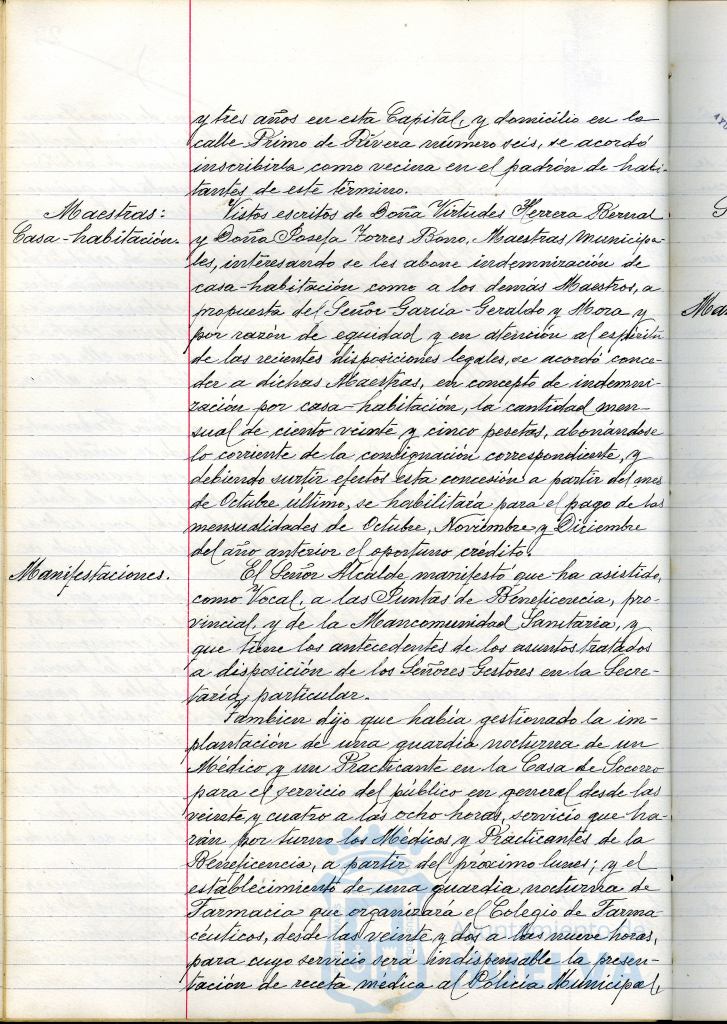 y tres años en esta Capital, y domicilio en la
calle Primo de Rivera número seis, se acordó
inscribirla como vecina en el padrón de habi-
tantes de este término.
Maestras:
Casa-habitación.
Vistos escritos de Doña Virtudes Herrera Bernal
y Doña Josefa Torres Bono, Maestras municipa-
les, interesando se les abone indemnización de
casa-habitación como a los demás Maestros, a
propuesta del Señor García-Geraldo y Mora y
por razón de equidad y en atención al espíritu
de las recientes disposiciones legales, se acordó conce-
der a dichas Maestras, en concepto de indemni-
zación por casa-habitación, la cantidad men-
sual de ciento veinte y cinco pesetas, abonándose
lo corriente de la consignación correspondiente, y
debiendo surtir efectos esta concesión a partir del mes
de Octubre último, se habilitará para el pago de las
mensualidades de Octubre, Noviembre y Diciembre
del año anterior el oportuno crédito.
Manifestaciones.
El Señor Alcalde manifestó que ha asistido,
como Vocal, a las Juntas de Beneficencia, pro-
vincial, y de la Mancomunidad Sanitaria, y
que tiene los antecedentes de los asuntos tratados
a disposición de los Señores Gestores en la Secre-
taría particular.
Tambien dijo que había gestionado la im-
plantación de una guardia nocturna de un
Médico y un Practicante en la Casa de Socorro
para el servicio del público en general desde las
veinte y cuatro a las ocho horas, servicio que ha-
rán por turno los Médicos y Practicantes de la
Beneficencia, a partir del proximo lunes; y el
establecimiento de una guardia nocturna de
Farmacia que organizará el Colegio de Farma-
céuticos, desde las veinte y dos a las nueve horas,
para cuyo servicio será indispensable la presen-
tación de receta medica al Policía Municipal,
Ayuntamiento de
HUELVA